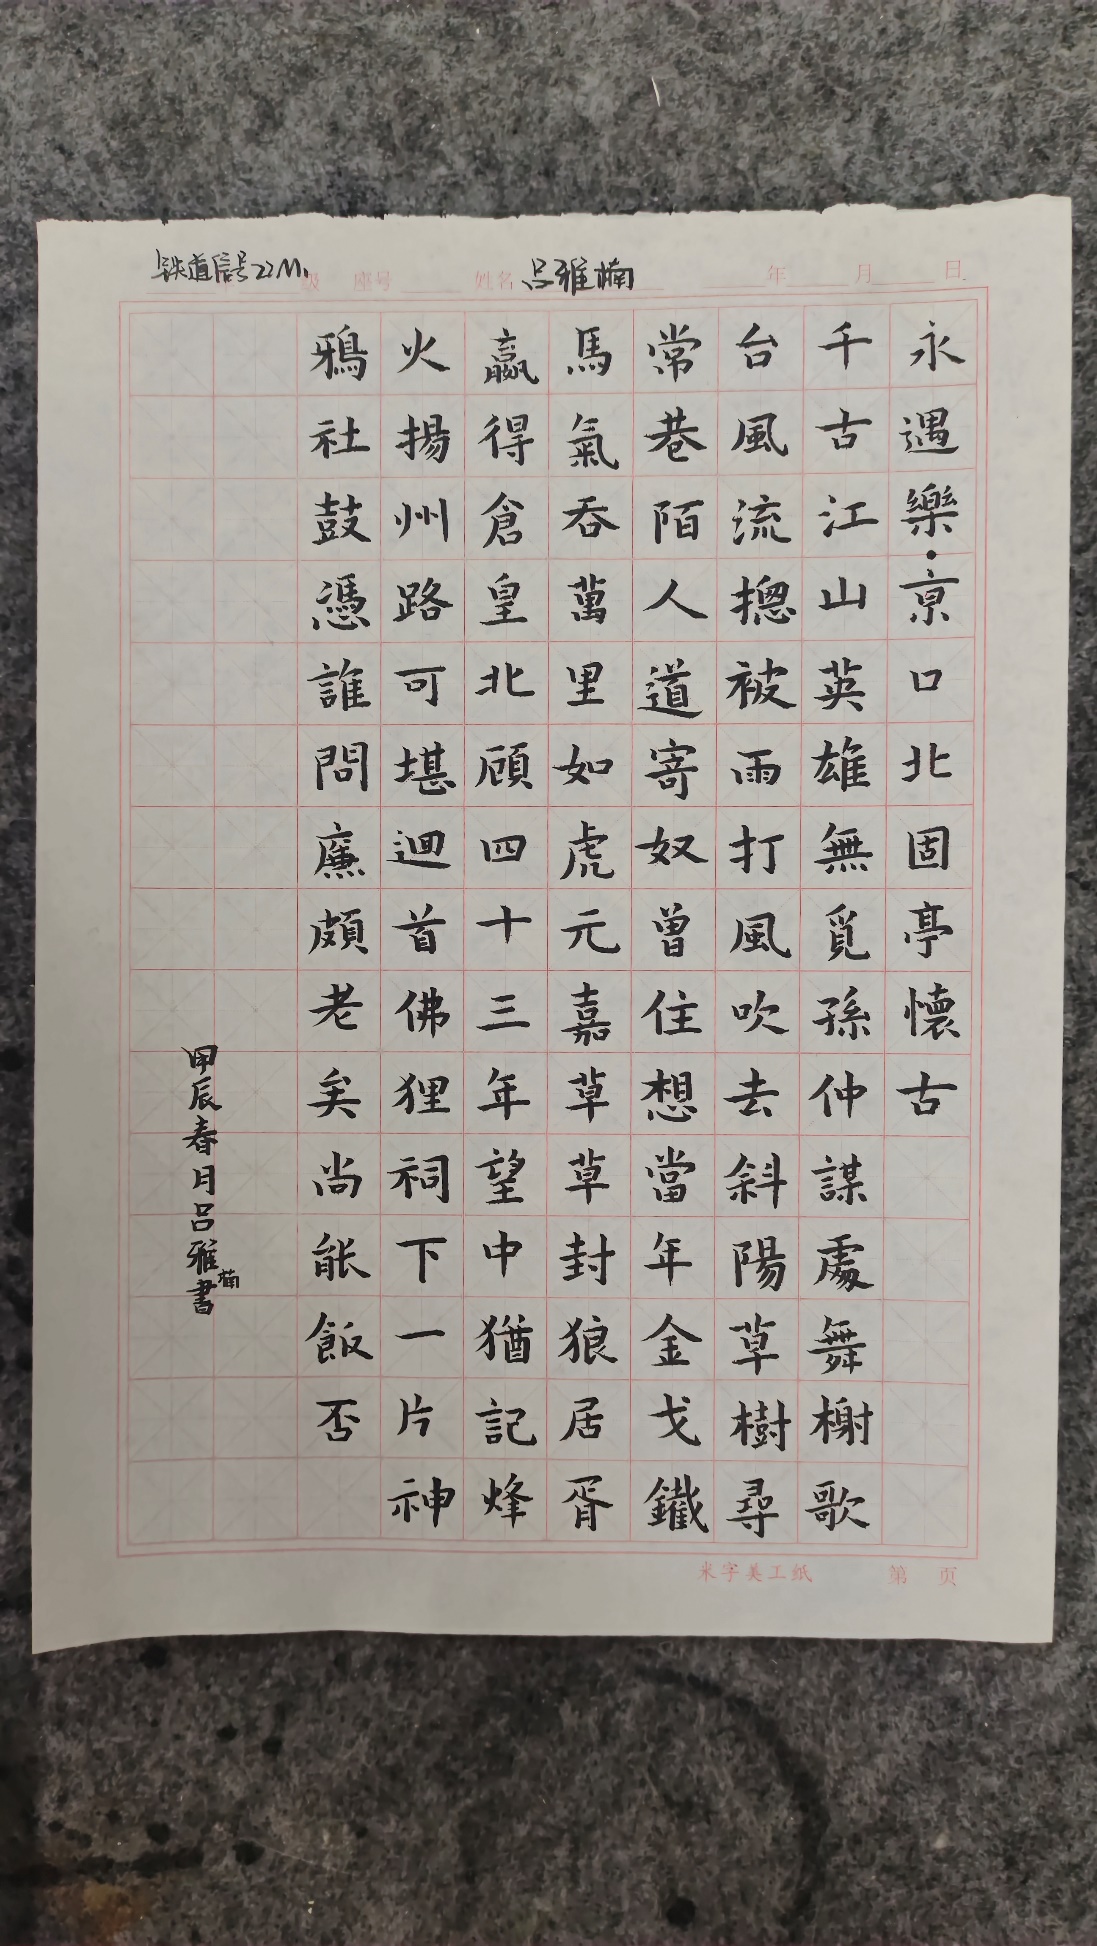 铁道信号22M1 级 座号 姓名 吕雅楠 年 月 日
永遇樂·京口北固亭懷古
千古江山英雄無覓孫仲謀處舞榭歌
台風流摠被雨打風吹去斜陽草樹尋
常巷陌人道寄奴曾住想當年金戈鐵
馬氣吞萬里如虎元嘉草草封狼居胥
贏得倉皇北顧四十三年望中猶記烽
火揚州路可堪迴首佛狸祠下一片神
鴉社鼓憑誰問廉頗老矣尚能飯否
甲辰春月吕雅楠書
米字美工纸 第 页